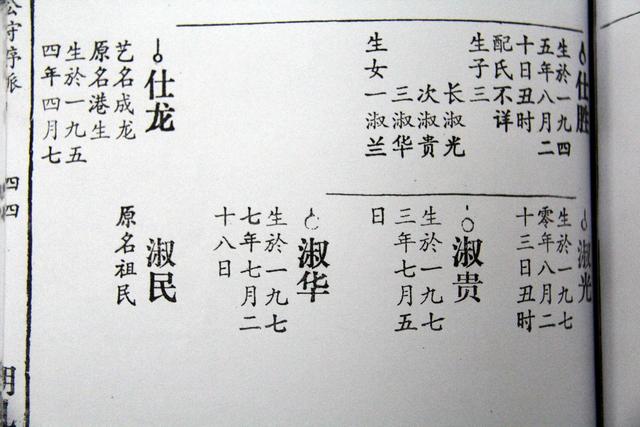 仕胜
生於一九四
五年八月二
十日丑时
配氏不详
生子三
长淑光
次淑贵
三淑华
生女一淑兰
仕龙
艺名成龙
原名港生
生於一九五
四年四月七
淑光
生於一九七
零年八月二
十三日丑时
淑贵
生於一九七
三年七月五
日
淑华
生於一九七
七年七月二
十八日
淑民
原名祖民
守序派
四四